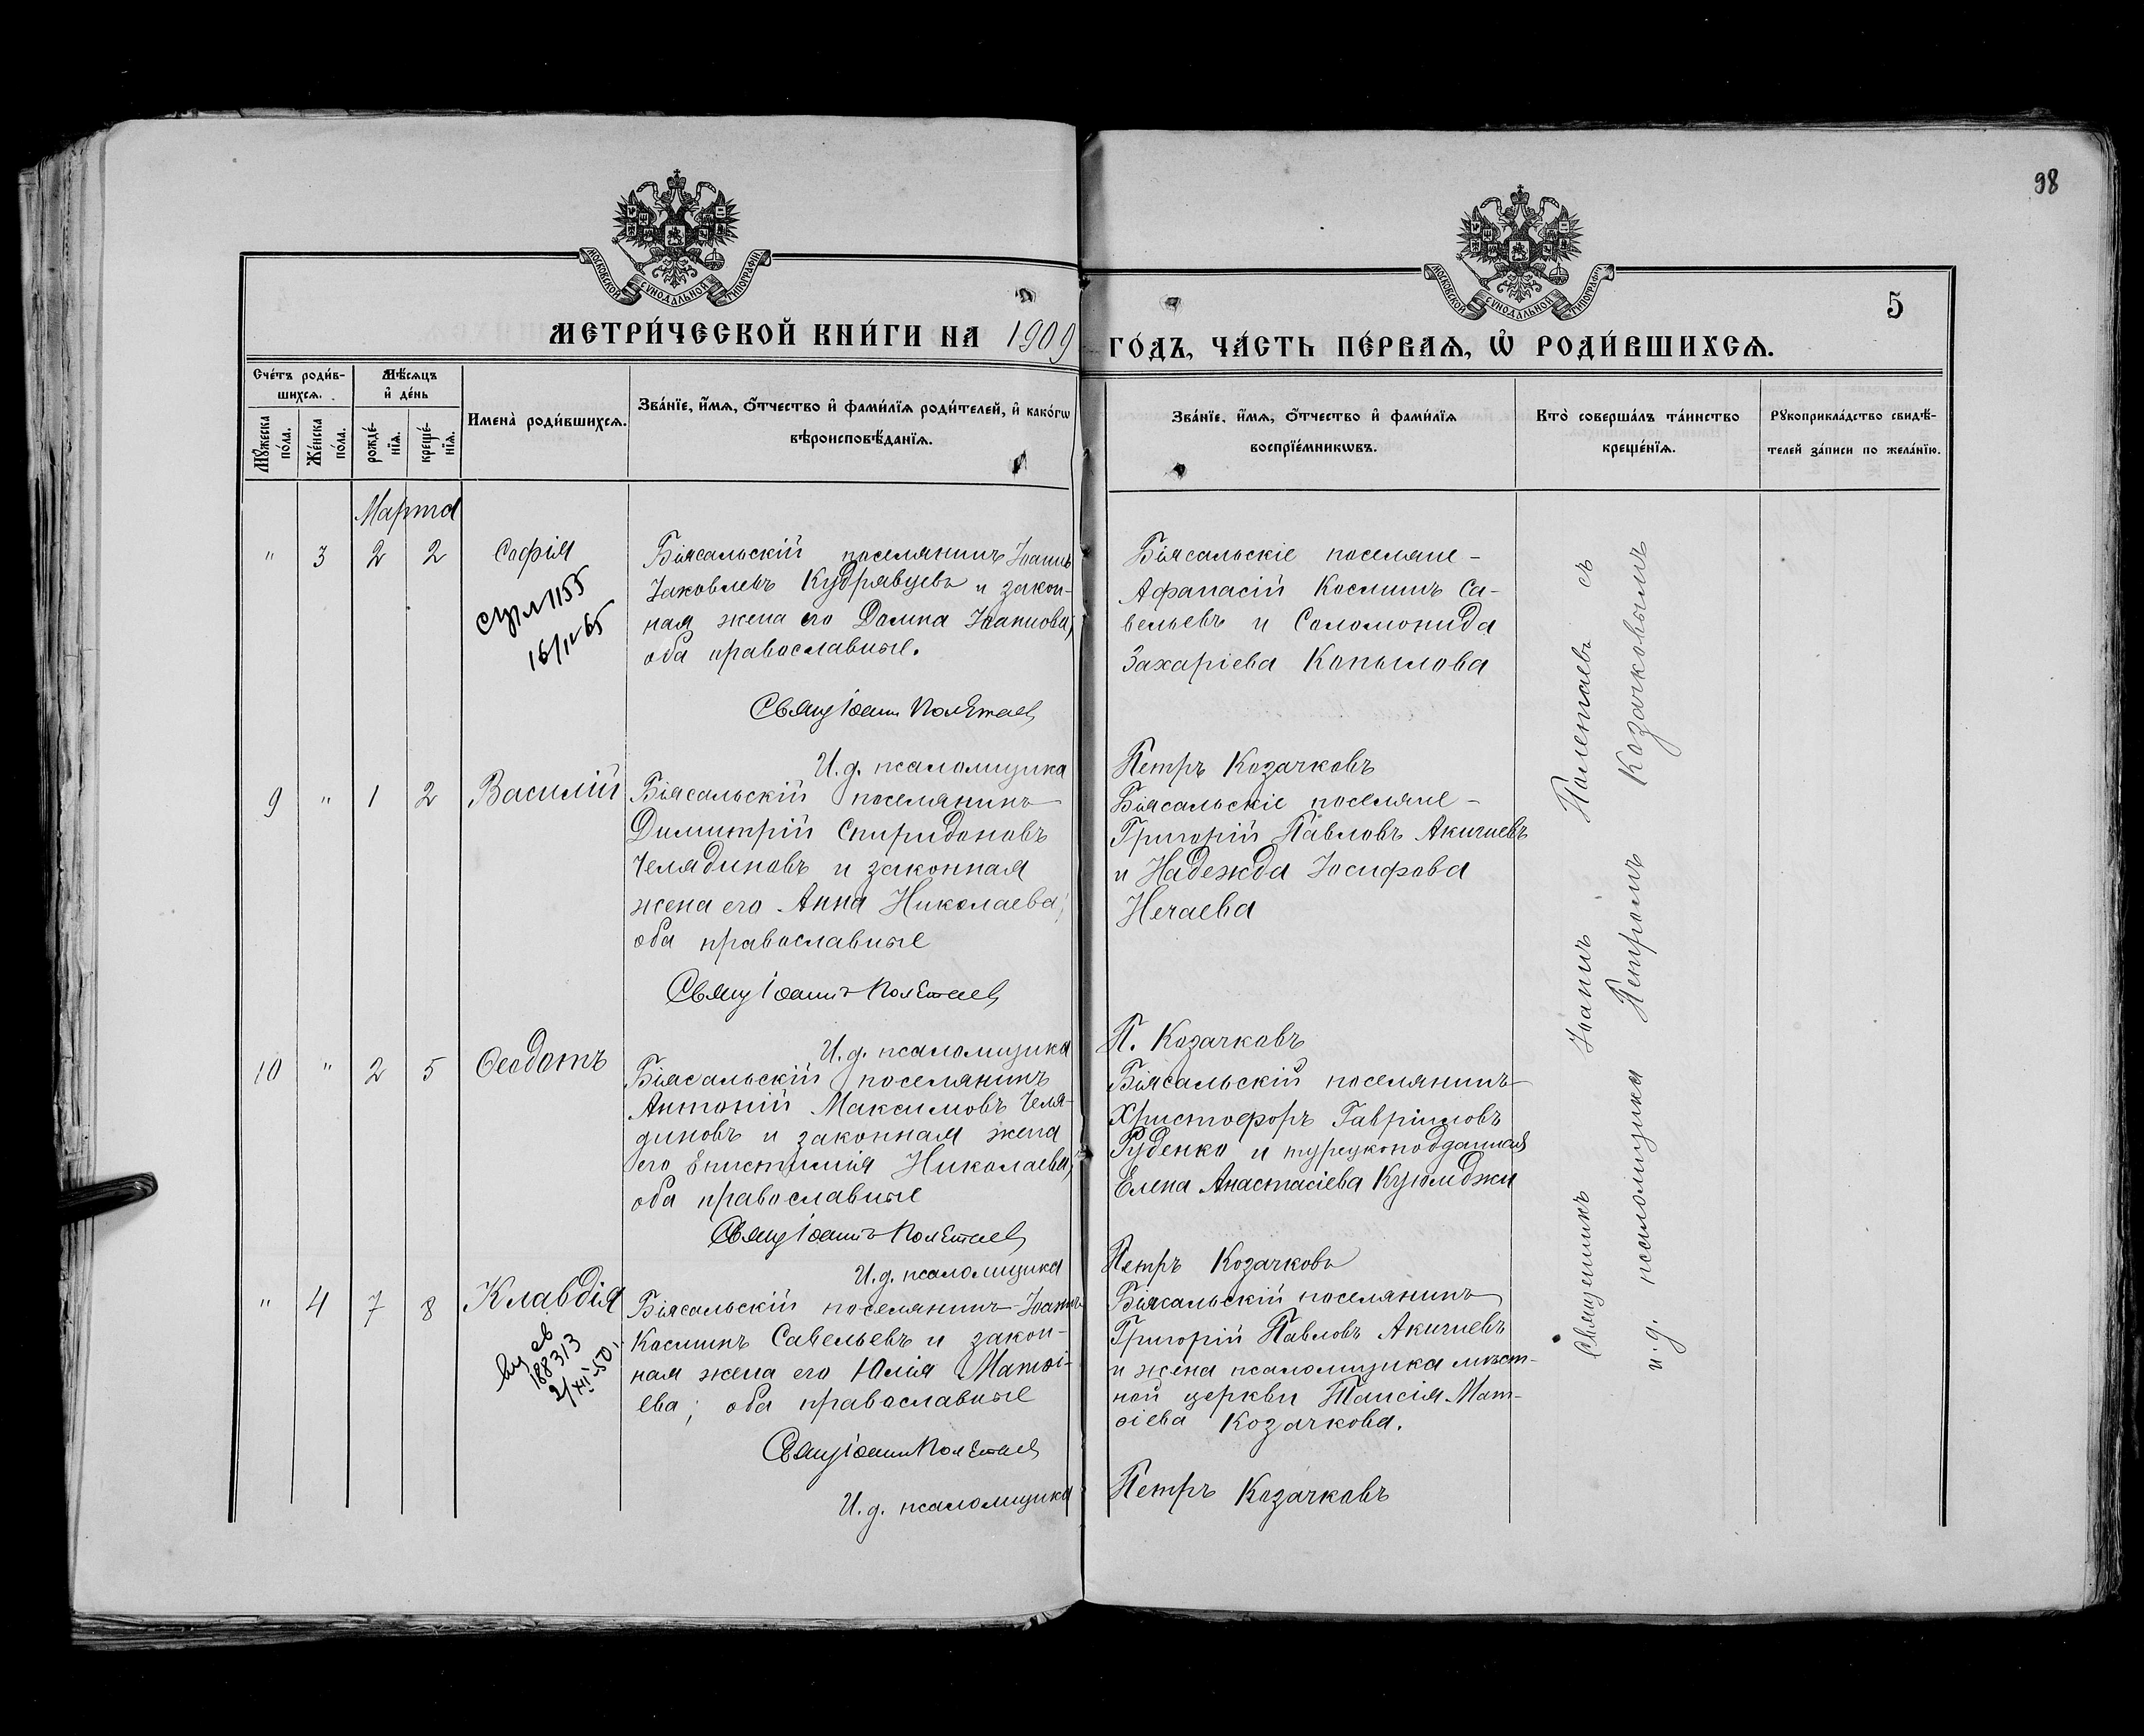 98
МОСКОВСКОЙ СУНОДАЛЬНОЙ ТИПОГРАФІИ
МОСКОВСКОЙ СУНОДАЛЬНОЙ ТИПОГРАФІИ
5
МЕТРИ́ЧЕСКОЙ КНИ́ГИ НА 1909
ГО́ДЪ, ЧА́СТЬ ПЕ́РВАѦ, Ѡ҆ РОДИ́ВШИХСѦ.
Сче́тъ роди́в-
шихсѧ.
Мꙋ́жеска по́ла.
Же́нска по́ла.
Мѣ́сѧцъ
и҆ де́нь
рожде́-
нїѧ.
креще́-
нїѧ.
Имена̀ роди́вшихсѧ.
Зва́нїе, и҆́мѧ, ѻ҆́тчество и҆ фами́лїѧ роди́телей, и҆ како́гѡ
вѣроисповѣ́данїѧ.
Зва́нїе, и҆́мѧ, ѻ҆́тчество и҆ фами́лїѧ
воспрїе́мникѡвъ.
Кто̀ соверша́лъ та́инство
креще́нїѧ.
Рꙋкоприкла́дство свидѣ́-
телей за́писи по жела́нїю.
Марта
" 3 2 2 Софія
1155
16/IV 65
Біясальскій поселянинъ Іоаннъ
Іаковлевъ Кудрявцевъ и закон-
ная жена его Домна Іоаннова;
оба православные.
Свящ Іоанн Полѣтаев
И. д. псаломщика
Біясальскіе поселяне -
Афанасій Косминъ Са-
вельевъ и Соломонида
Захаріева Копылова
Петръ Козачковъ
9 " 1 2 Василій
Біясальскій поселянинъ
Димитрій Спиридоновъ
Челядиновъ и законная
жена его Анна Николаева;
оба православные
Свящ Іоаннъ Полѣтаев
И. д. псаломщика
Біясальскіе поселяне -
Григорій Павловъ Акичиевъ
и Надежда Іосифова
Нечаева
П. Козачковъ
10 " 2 5 Ѳеодотъ
Біясальскій поселянинъ
Антоній Максимовъ Челя-
диновъ и законная жена
его Епистимія Николаева;
оба православные
Свящ Іоаннъ Полѣтаев
И. д. псаломщика
Біясальскій поселянинъ
Христофоръ Гавріиловъ
Руденко и турецкоподданная
Елена Анастасіева Куюмджи
Петръ Козачковъ
" 4 7 8 Клавдія
188313
2/XII-50
Біясальскій поселянинъ Іоаннъ
Косминъ Савельевъ и закон-
ная жена его Юлія Матѳі-
ева; оба православные
Свящ Іоанн Полѣтаев
И. д. псаломщика
Біясальскій поселянинъ
Григорій Павловъ Акичиевъ
и жена псаломщика мѣст-
ной церкви Таисія Мат-
ѳіева Козачкова.
Петръ Козачковъ
Священникъ Іоаннъ Полетаевъ съ
и. д. псаломщика Петромъ Козачковымъ